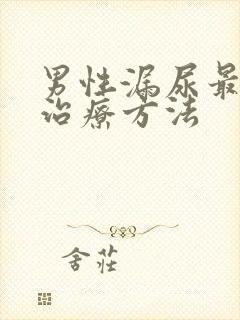 男性漏尿最
治療方法
舍莊